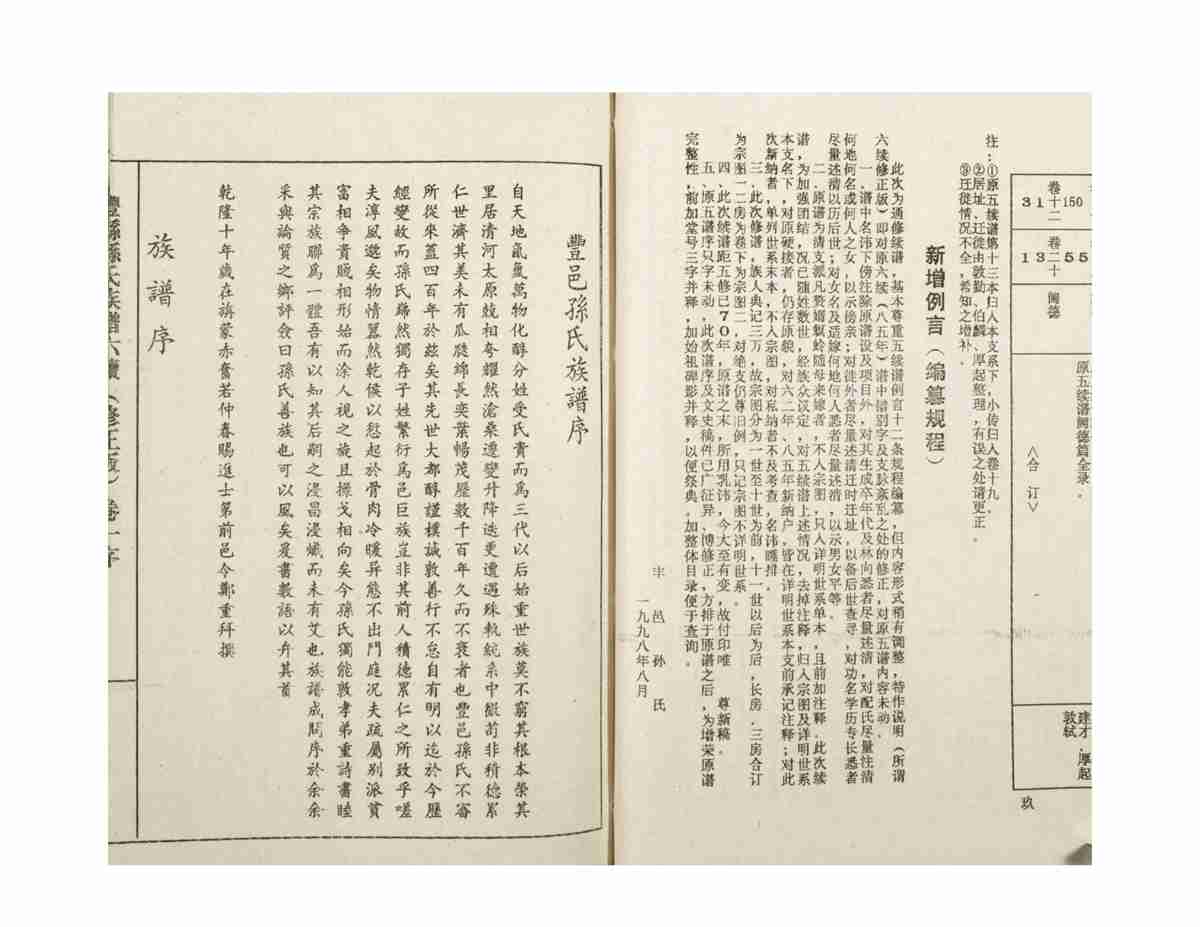 卷十二
31
150
卷二十
13
55
阙德
原五续谱阙德篇全录。
<合 订>
敦轼
玖
注：①原五续谱第十三本归入本支系下，小传归入卷十九。
②居址、迁徙由敦勤、伯麟、厚起整理，有误之处请更正。
③迁徙情况不全，希知之增补。
新增例言（编纂规程）
此次为通修续谱，基本尊重五续谱例言十二条规程编纂，但内容形式稍有调整，特作说明（所谓
六续修正版）即对原六续（八五年）谱中错别字及支脉紊乱之处的修正，对原五谱内容未动。
一、谱中名讳下傍注除原谱设及项目外，对其生成卒年代及林向悉者尽量述清，对配氏尽量注清
何地何名或何人之女，以示傍亲；对徙外者尽量述清迁时迁址，以备后世查寻，对功名学历专长悉者
尽量述清以历后世；对女名及适嫁何地何人悉者尽量述清，以示男女平等。
二、原谱为清支派凡赘婿螟蛉随母来嫁者，不入宗图，只入详明世系单本，且前加注释。此次续
谱，为加强团结，况已随姓数世，经族众议定，对五续谱上述情况，去掉注释，归入宗图及详明世系
本支名下，对原硬接者，仍存原貌，对六二年、八五年新纳户，皆在详明世系本支前承记注释；对此
次新纳者，单列世系末本，不入宗图，对私纳者，不及考查，名讳瞧排。
三、此次修谱，族人典记三万，故宗图分为一世至十世为前，十一世以后为后，长房．三房合订
为宗图一二房为卷下为宗图二．对绝支仍尊旧例，只记宗图不详明世系。
四、此次续谱距五修已70年，原谱之末，所用乳讳，今大至有变，故付印唯　尊新稿。
五、原五谱序只字未动，此次谱序及文史稿件已广征异、博修正，方排于原谱之后，为增荣原谱
完整性，前加堂号三字并释，加始祖碑影并释，以便祭典。加整体目录便于查询。
丰　邑　孙　氏
一九九八年八月
豐邑孫氏族譜序
自天地氤氳萬物化醇分姓受氏貴而爲三代以后始重世族莫不窮其根本榮其
里居清河太原競相夸耀然滄桑遷變升降迭更遭遇殊軌統系中微茍非積德累
仁世濟其美未有瓜瓞綿長奕葉暢茂歷數千百年久而不衰者也豐邑孫氏不審
所從來蓋四百年於兹矣其先世大都醇謹樸誠敦善行不怠自有明以迄於今歷
經變故而孫氏巋然獨存子姓繁衍爲邑巨族豈非其前人積德累仁之所致乎嗟
夫淳風邈矣物情囂然乾餱以愆起於骨肉冷暖异態不出門庭况夫疏屬別派貧
富相爭貴賤相形始而涂人視之旋且操戈相向矣今孫氏獨能敦孝弟重詩書睦
其宗族聯爲一體吾有以知其后嗣之浸昌浸熾而未有艾也族譜成問序於余余
采輿論質之鄉評僉曰孫氏善族也可以風矣爰書數語以弁其首
乾隆十年歲在旃蒙赤奮若仲春賜進士第前邑令鄭重拜撰
族譜序
豐縣孫氏族譜六續（修正版）卷一序